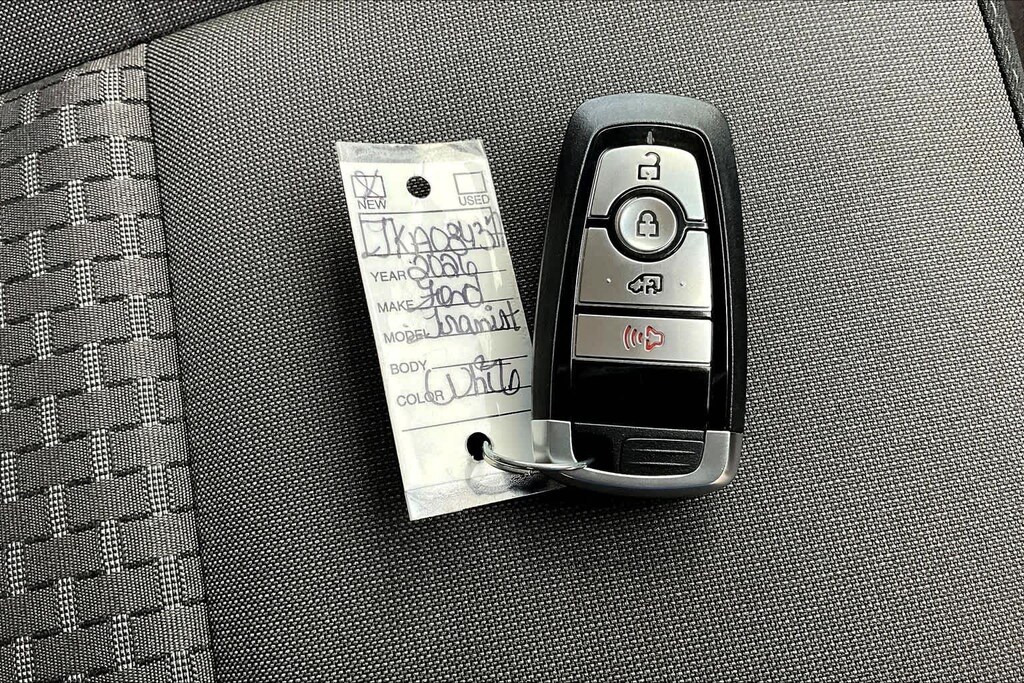 NEW USED
TKA08437
YEAR 2026
MAKE Ford
MODEL Transit
BODY
COLOR White